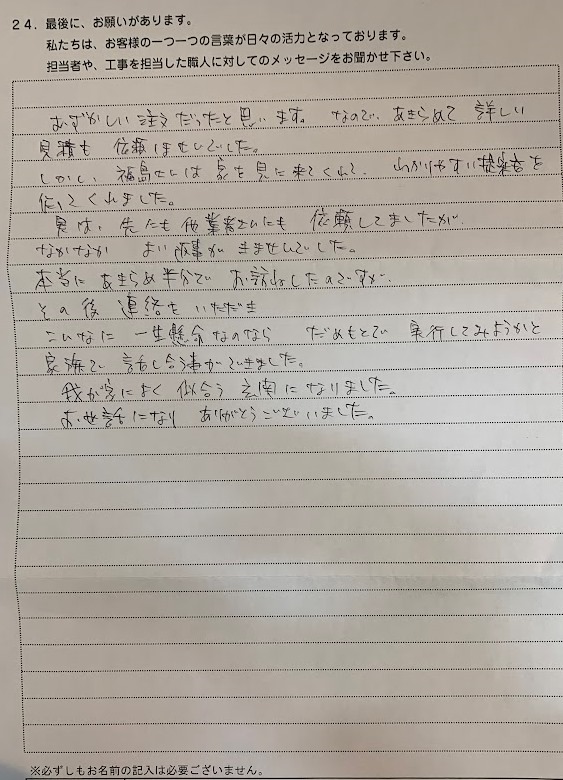 24．最後に、お願いがあります。
私たちは、お客様の一つ一つの言葉が日々の活力となっております。
担当者や、工事を担当した職人に対してのメッセージをお聞かせ下さい。
むずかしい注文だったと思います。なので、あきらめて 詳しい
見積も 依頼しませんでした。
しかし、福島さんは 家を見に来てくれて、わかりやすい提案書を
作ってくれました。
実は、先にも 他業者さんにも 依頼してましたが、
なかなか よい返事が きませんでした。
本当に あきらめ半分で お訪ねしたのですが、
その後 連絡も いただき
こんなに 一生懸命なのなら だめもとで 実行してみようかと
家族で 話し合う事ができました。
我が家によく 似合う 玄関になりました。
お世話になり ありがとうございました。
※必ずしもお名前の記入は必要ございません。